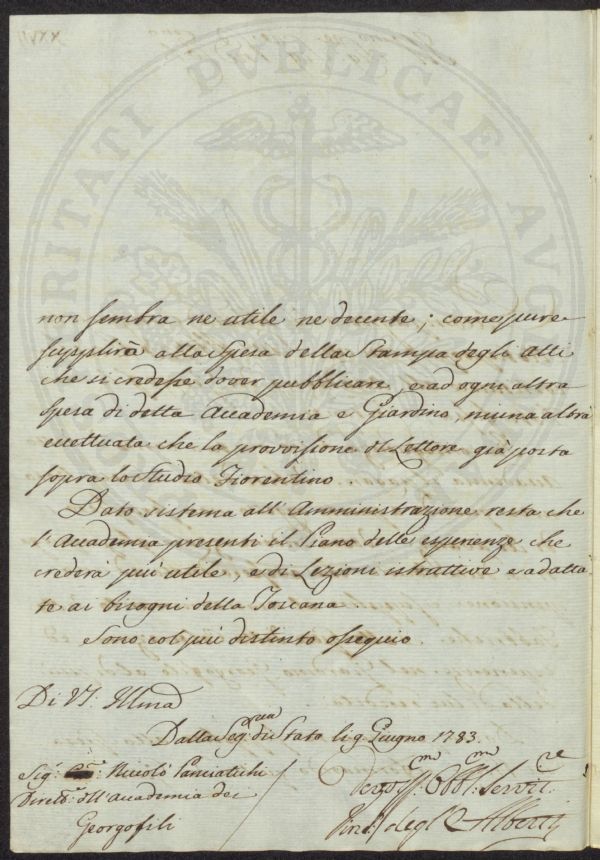 PVBLICAE
non sembra ne utile ne decente; come pure
supplirà alla Spesa della Stampa degli Atti
che si credesse dover pubblicare, e ad ogni altra
spesa di detta Accademia e Giardino, niuna altra
eccettuata che la provvisione del Lettore già posta
sopra lo Studio Fiorentino.
Dato sistema all' Amministrazione resta che
l'Accademia presenti il Piano delle esperienze che
crederà piu utile, e di Lezioni istruttive e adatta-
te ai bisogni della Toscana.
e Sono col piu distinto ossequio.
Di VS. Illma
Dalla Seg.ria di Stato li 9. Giugno 1783.
Sig.r Niccolò Panciatichi
Dirett.e dell'Accademia dei
Georgofili
Obb.mo Servit.re
degl'Alberti